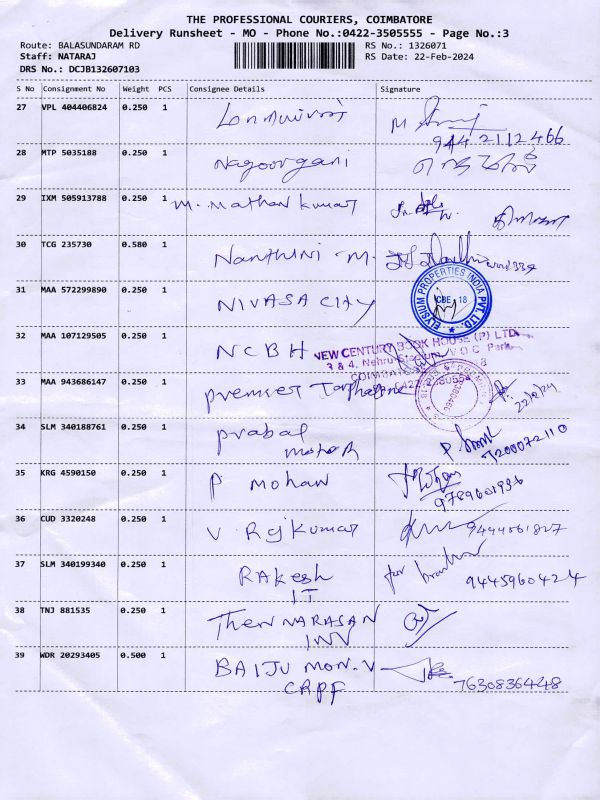 THE PROFESSIONAL COURIERS, COIMBATORE
Delivery Runsheet - MO - Phone No.:0422-3505555 - Page No.:3
Route: BALASUNDARAM RD RS No.: 1326071
Staff: NATARAJ RS Date: 22-Feb-2024
DRS No.: DCJB132607103
S No Consignment No Weight PCS Consignee Details Signature
27 VPL 404406824 0.250 1
9442112466
28 MTP 5035188 0.250 1 Nagoorgani
29 IXM 505913788 0.250 1 M. Mathan kumar
30 TCG 235730 0.580 1 Nanthini - M.
31 MAA 572299890 0.250 1 NIVASA CITY ELYSIUM PROPERTIES INDIA PVT. LTD. CBE 18
32 MAA 107129505 0.250 1 NCBH NEW CENTURY BOOK HOUSE (P) LTD
3 & 4, Nehru Stadium, V O C Park
33 MAA 943686147 0.250 1 premier 22/2/24
34 SLM 340188761 0.250 1 prabal
motor 7200072110
35 KRG 4590150 0.250 1 P Mohan 9789601996
36 CUD 3320248 0.250 1 V. Rajkumar 9444561827
37 SLM 340199340 0.250 1 RAkesh for 9445960424
IT
38 TNJ 881535 0.250 1 Then NARASAN
INV
39 WDR 20293405 0.500 1 BAIJU MON.V 7630836448
CRPF